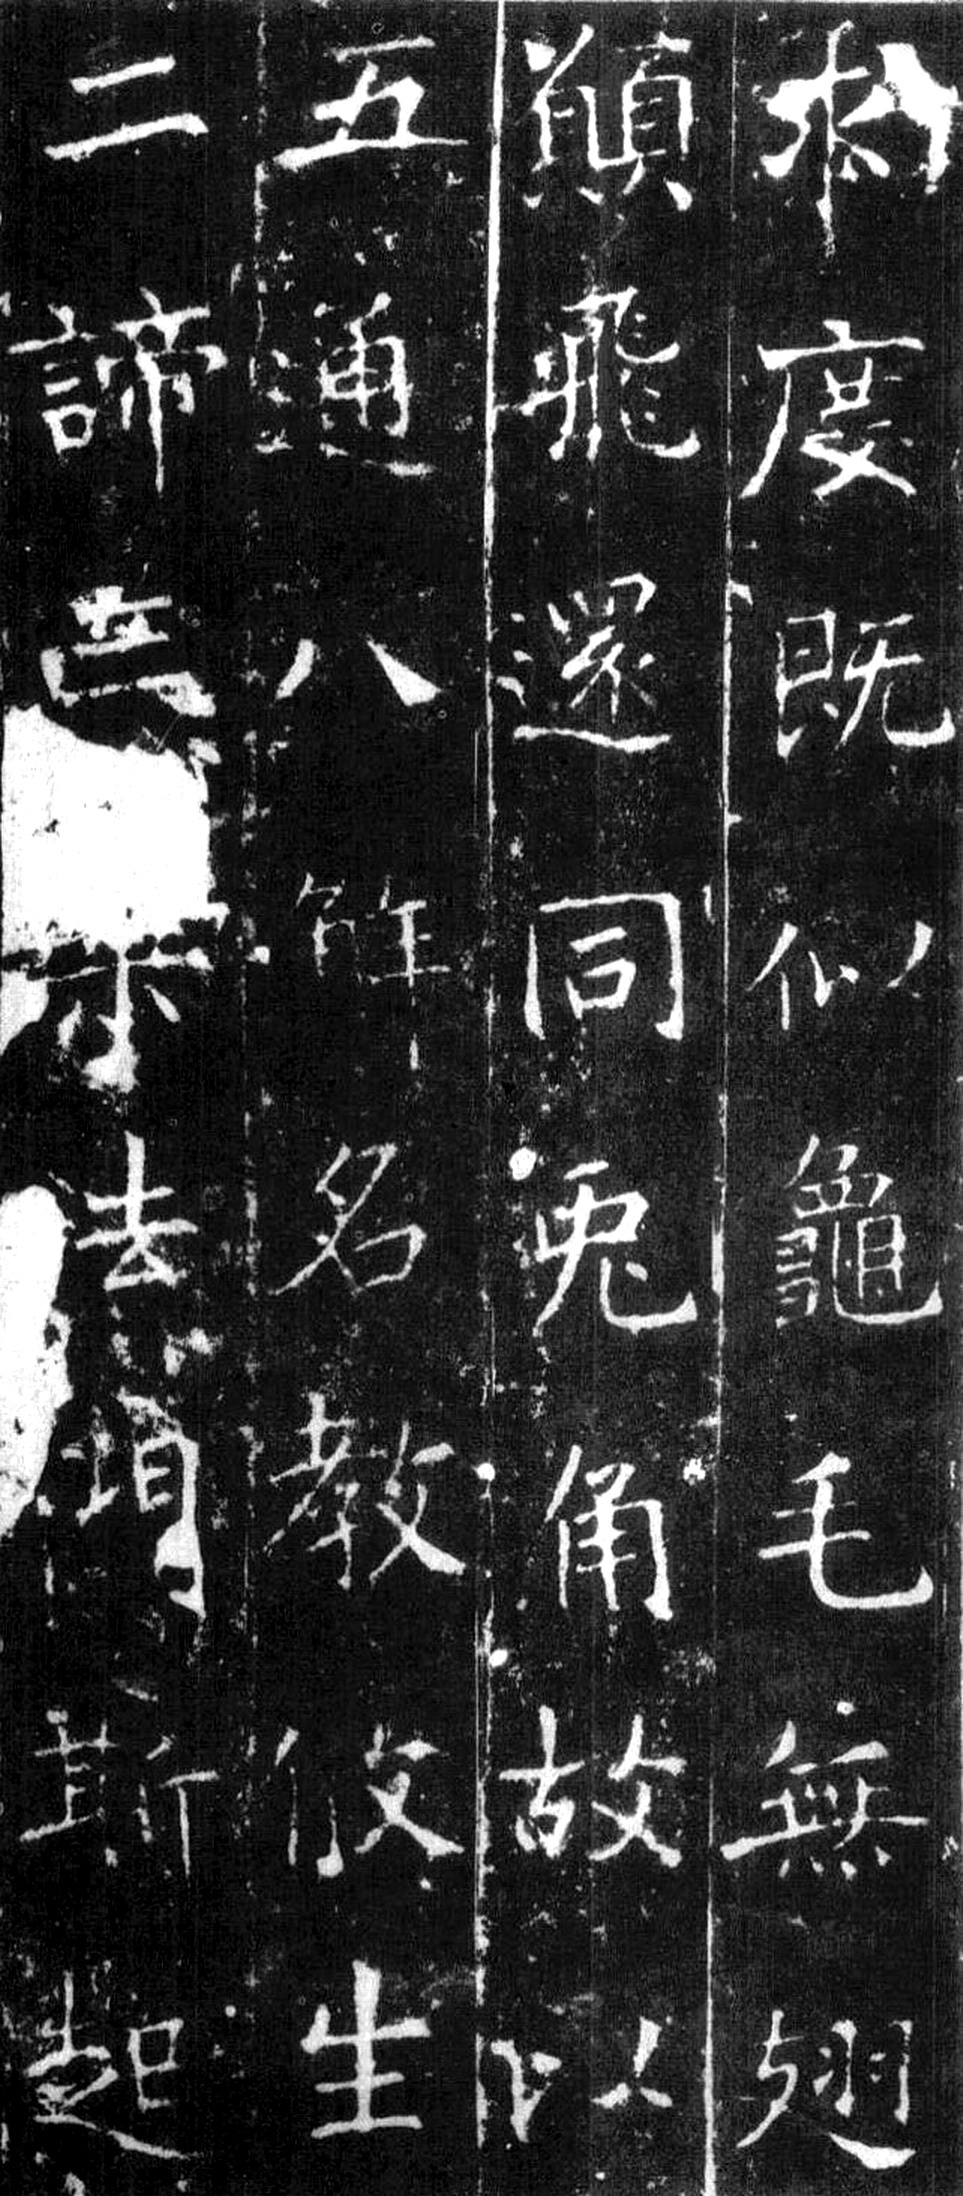 求度既似龜毛無翅
願飛還同兔角故以
五通八解名教攸生
二諦三乘法門斯起